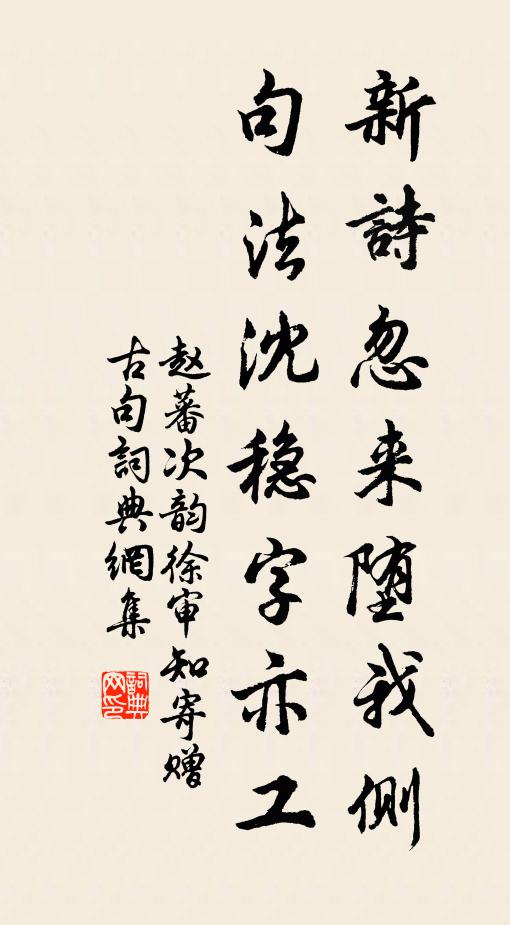 新詩忽来堕我側
句法沈稳字亦工
赵蕃次韵徐审知寄赠
古句詞典網集
詞典网印